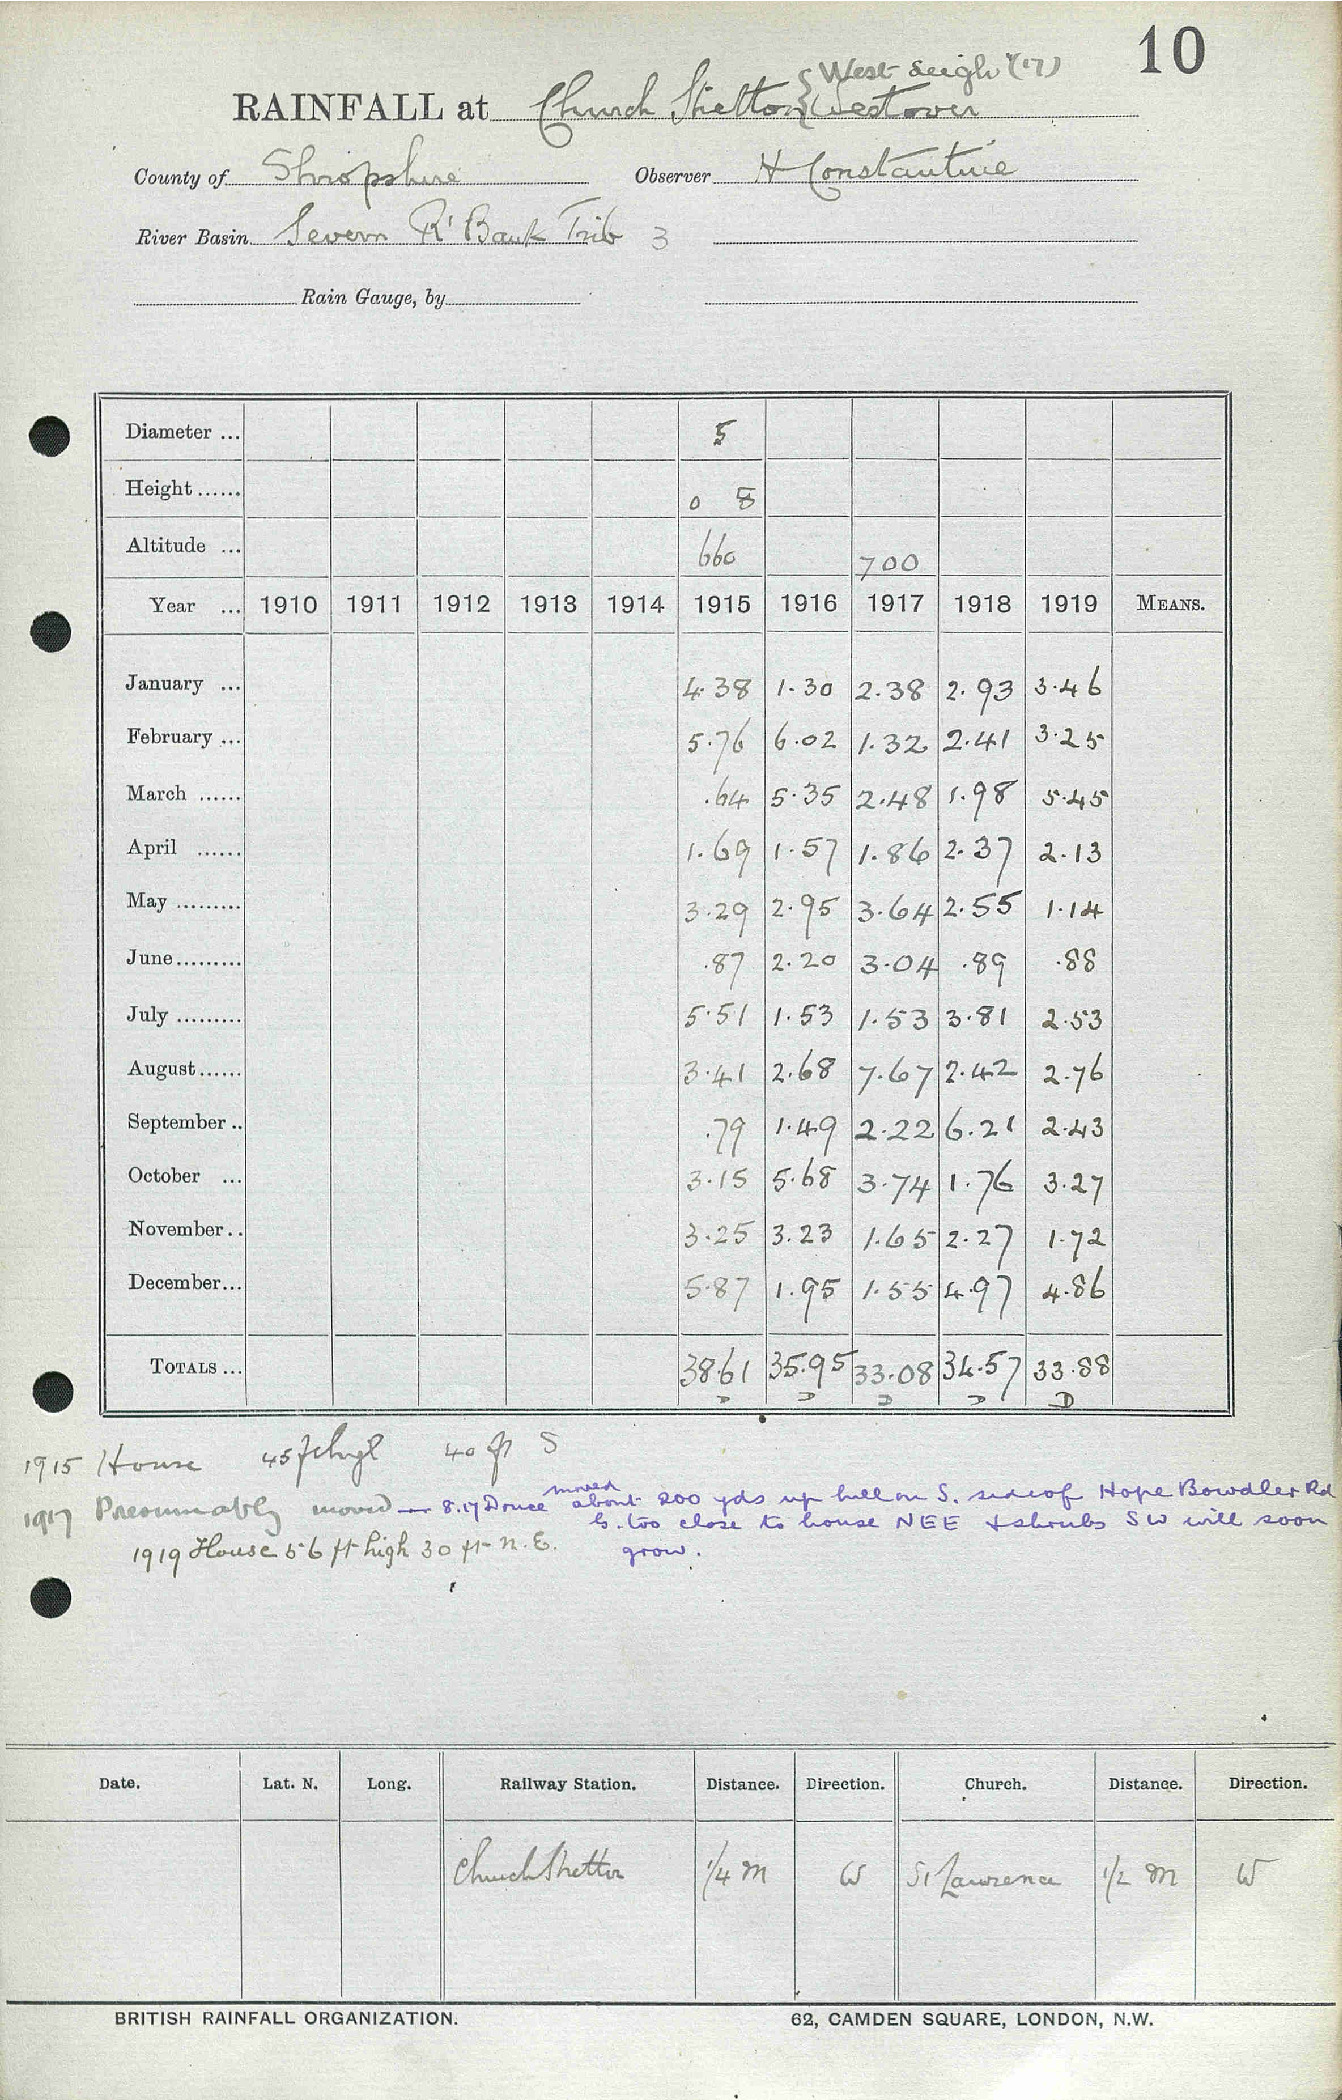 10
West Leigh (17)
RAINFALL at Church Stretton { Westover
County of Shropshire Observer H Constantine
River Basin Severn R' Bank Trib 3
Rain Gauge, by
Diameter ... 5
Height ...... 0 8
Altitude ... 660 700
Year ... 1910 1911 1912 1913 1914 1915 1916 1917 1918 1919 MEANS.
January ... 4.38 1.30 2.38 2.93 3.46
February ... 5.76 6.02 1.32 2.41 3.25
March ...... .64 5.35 2.48 1.98 5.45
April ...... 1.69 1.57 1.86 2.37 2.13
May ......... 3.29 2.95 3.64 2.55 1.14
June ......... .87 2.20 3.04 .89 .88
July ......... 5.51 1.53 1.53 3.81 2.53
August ...... 3.41 2.68 7.67 2.42 2.76
September .. .79 1.49 2.22 6.21 2.43
October ... 3.15 5.68 3.74 1.76 3.27
November .. 3.25 3.23 1.65 2.27 1.72
December ... 5.87 1.95 1.55 4.97 4.86
TOTALS ... 38.61 35.95 33.08 34.57 33.88
D D D D D
1915 House 45 ft high 40 ft S
1917 Presumably moved — 8.17 moved about 200 yds up hill on S. side of Hope Bowdler Rd
G. too close to house NEE & shrubs SW will soon
grow.
1919 House 56 ft high 30 ft N.E.
Date. Lat. N. Long. Railway Station. Distance. Direction. Church. Distance. Direction.
Church Stretton 1/4 m W St Lawrence 1/2 m W
BRITISH RAINFALL ORGANIZATION. 62, CAMDEN SQUARE, LONDON, N.W.